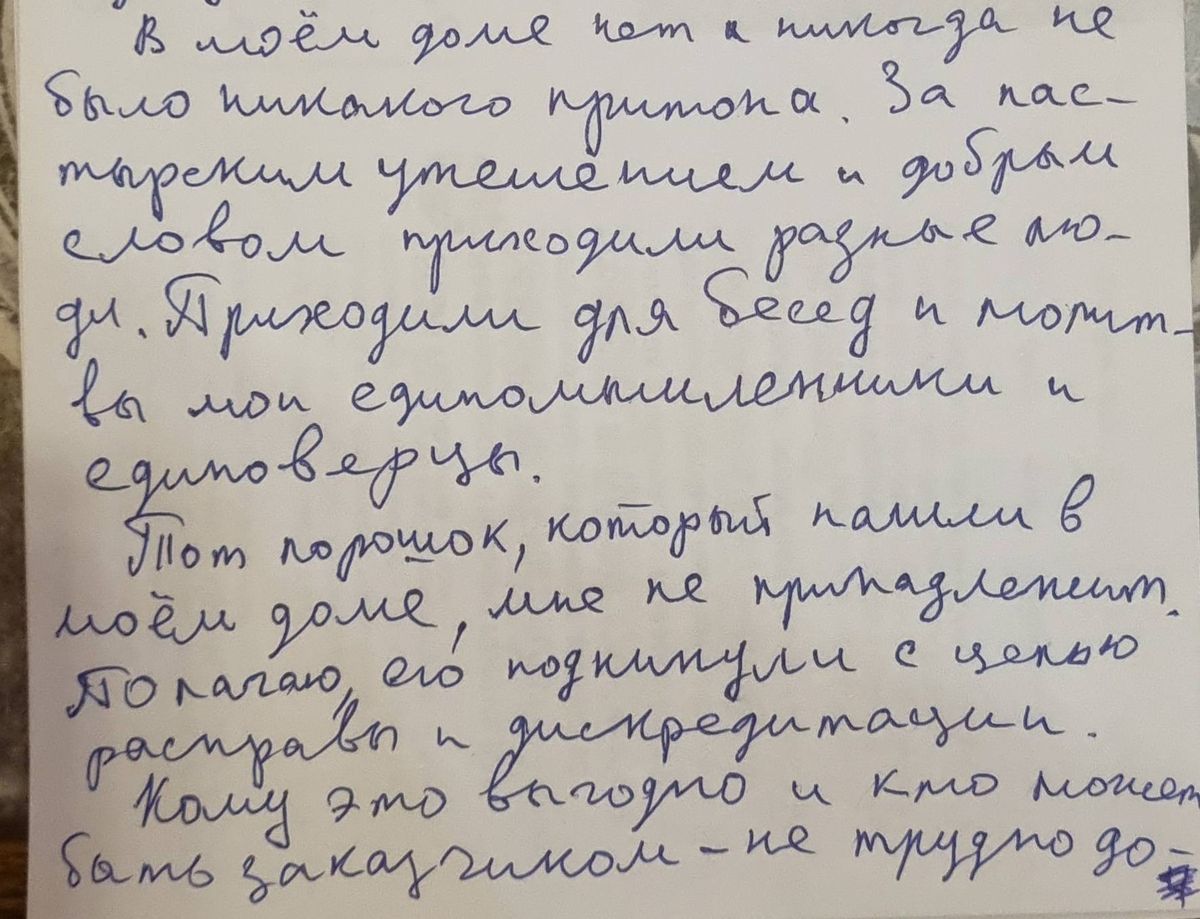 В моём доме нет и никогда не
было никакого притона. За пас-
тырским утешением и добрым
словом приходили разные лю-
ди. Приходили для бесед и молит-
вы мои единомышленники и
единоверцы.
Тот порошок, который нашли в
моём доме, мне не принадлежит.
Полагаю, его подкинули с целью
расправы и дискредитации.
Кому это выгодно и кто может
быть заказчиком - не трудно до-